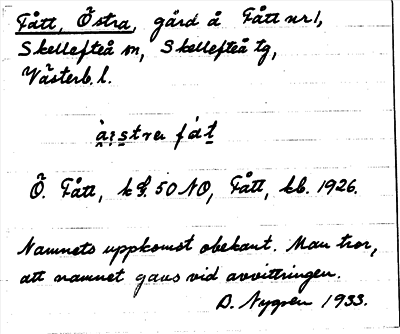 Fått, Östra, gård å Fått nr 1,
Skellefteå sn, Skellefteå tg,
Västerb. l.
fát
Ö. Fått, k 50 NO, Fått, kb. 1926.
Namnets uppkomst obekant. Man tror,
att namnet gavs vid avvittringen.
D. Nygren 1933.